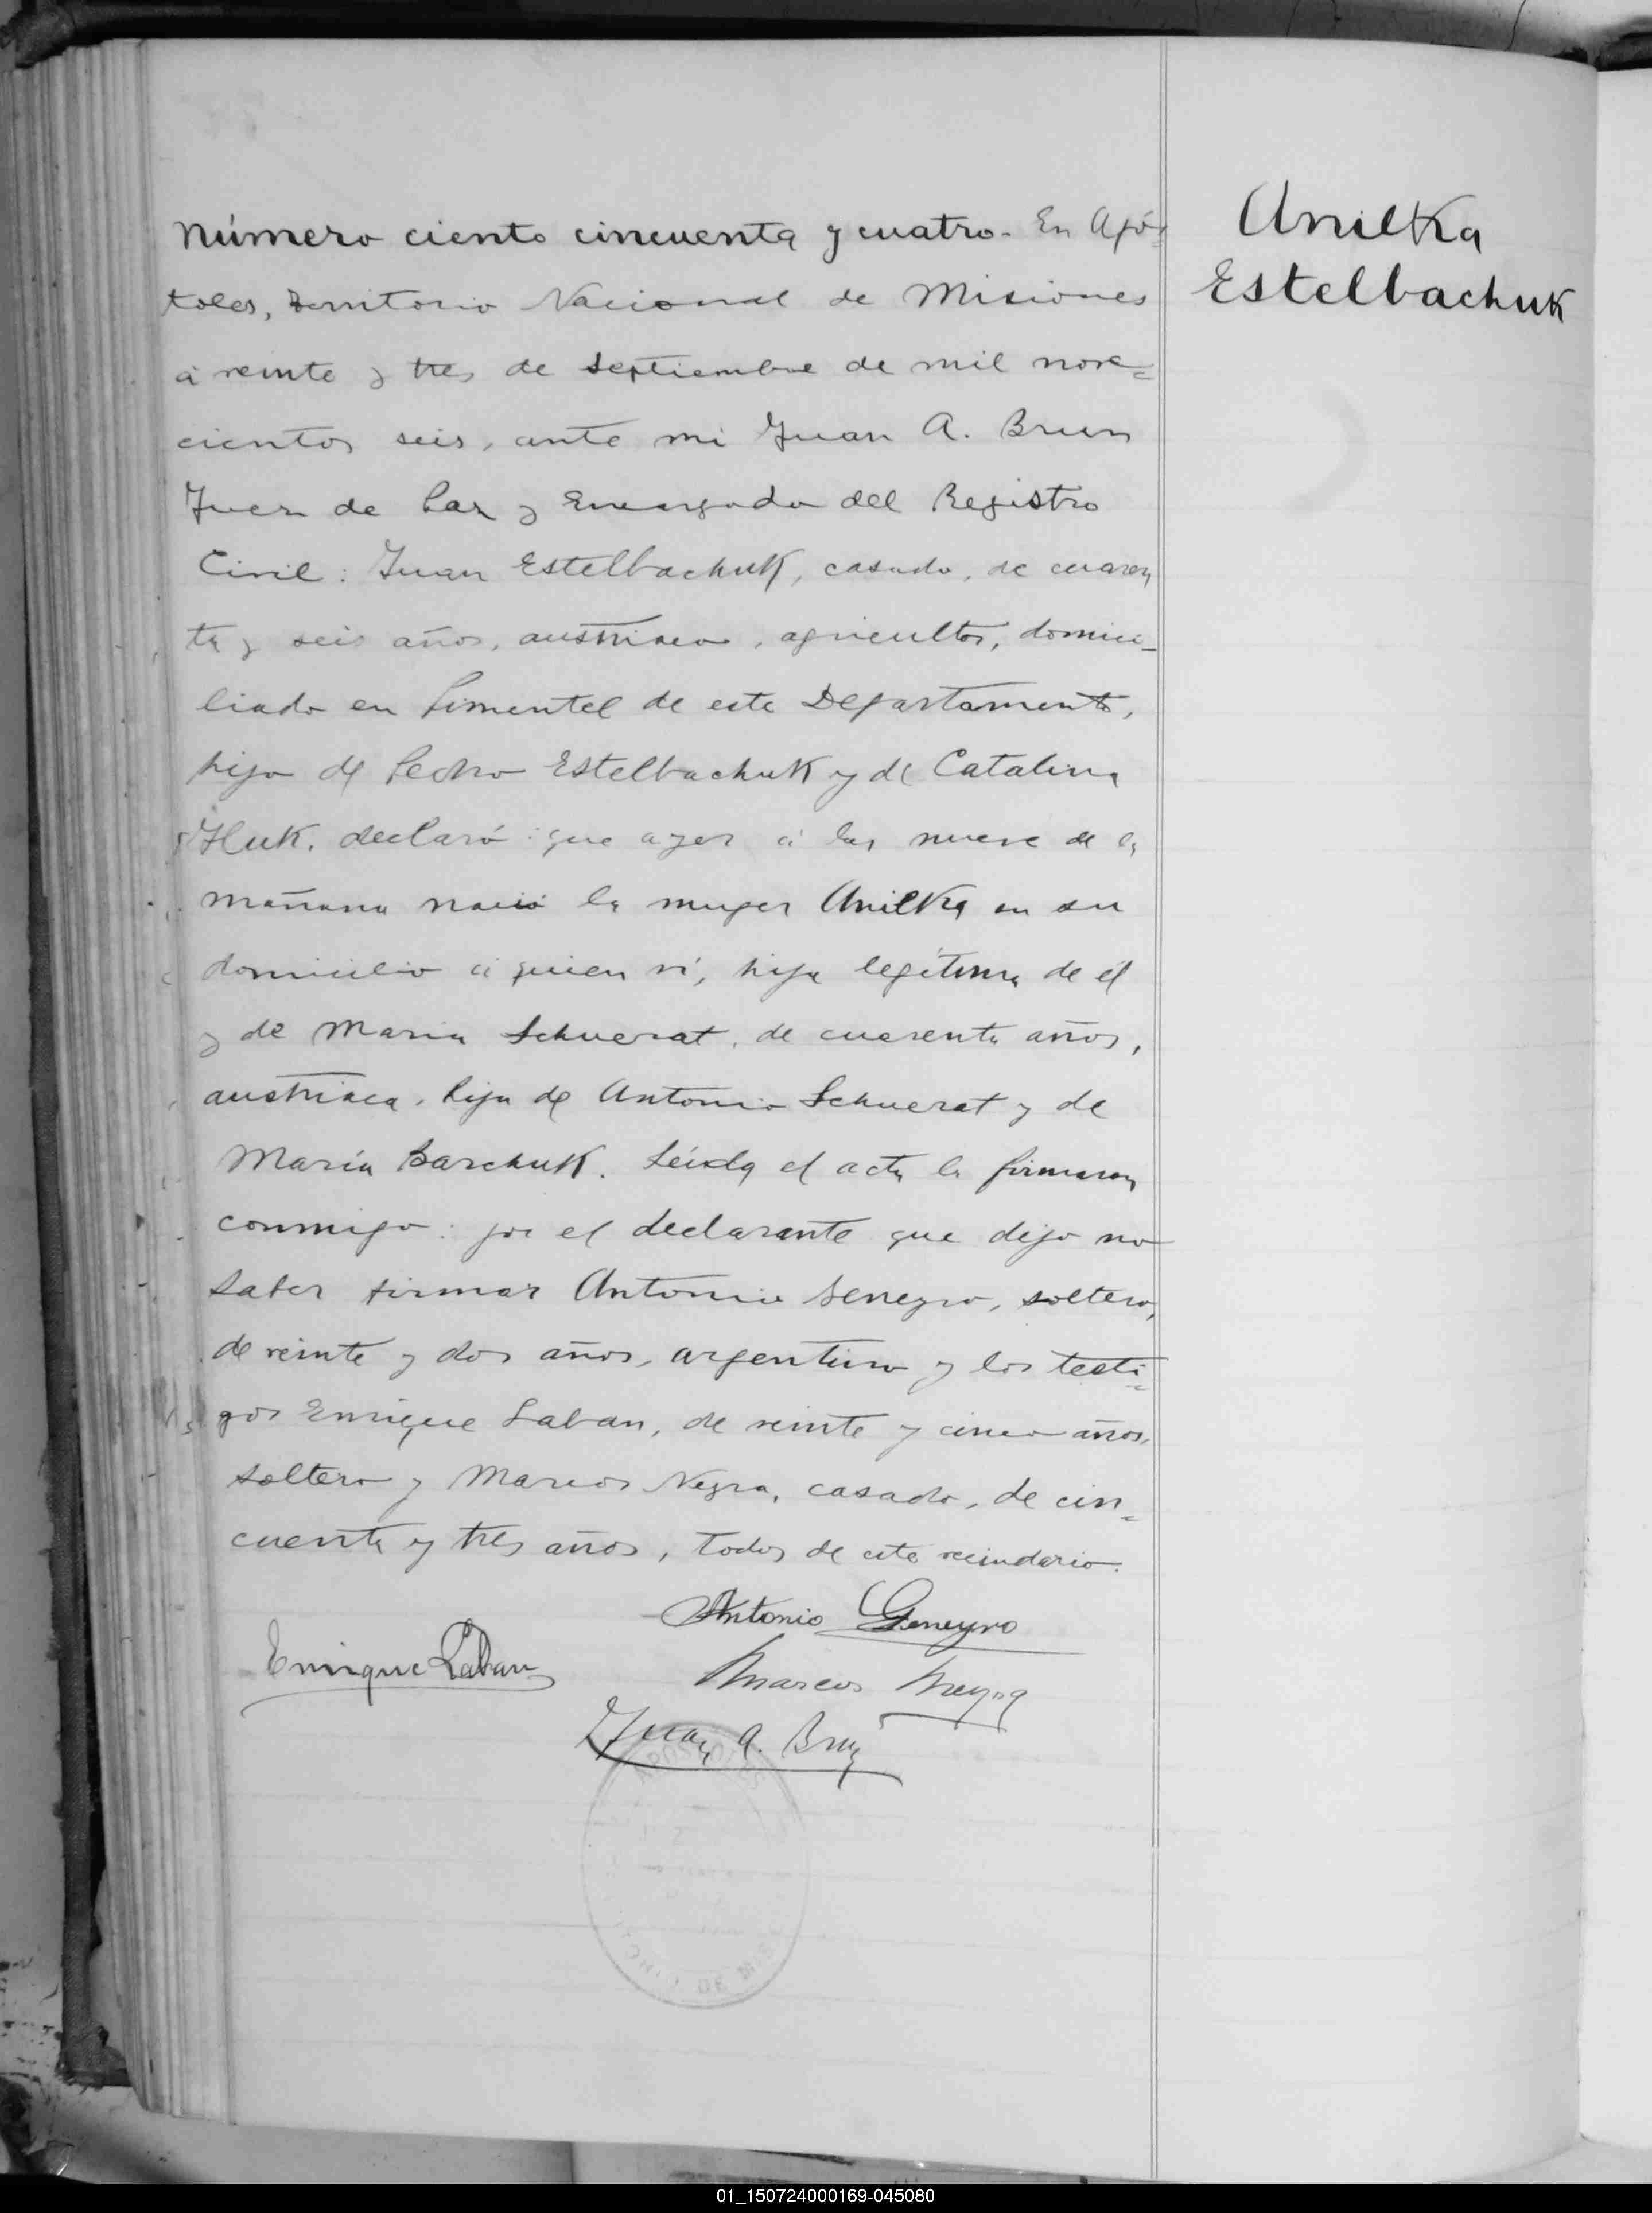 Anilka
Estelbachuk
Número ciento cincuenta y cuatro. En Após=
toles, Territorio Nacional de Misiones
á veinte y tres de Septiembre de mil nove=
cientos seis, ante mi Juan A. Brun
Juez de Paz y Encargado del Registro
Civil: Juan Estelbachuk, casado, de cuaren
ta y seis años, austriaco, agricultor, domici-
liado en Pimentel de este Departamento,
hijo de Pedro Estelbachuk y de Catalina
Huk, declaró: que ayer á las nueve de la
mañana nació la mujer Anilka en su
domicilio á quien ví, hija legítima de él
y de Maria Schuerat, de cuarenta años,
austriaca, hija de Antonio Schuerat y de
María Barchuk. Leida el acta la firmaron
conmigo: por el declarante que dijo no
saber firmar Antonio Geneyro, soltero,
de veinte y dos años, argentino y los testi=
gos Enrique Laban, de veinte y cinco años,
soltero y Marcos Negra, casado, de cin=
cuenta y tres años, todos de este vecindario.
Antonio Geneyro
Enrique Laban
Marcos Negra
Juan A. Brun
01_150724000169-045080